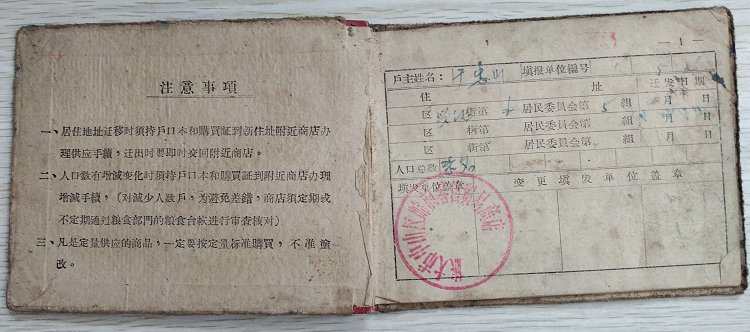 注意事項
一、居住地址迁移时須持戶口本和購買証到新住址附近商店办
理供应手續，迁出时要即时交回附近商店。
二、人口数有增減变化时須持戶口本和購買証到附近商店办理
增減手續，(对減少人欵戶，为避免差錯，商店須定期或
不定期通过粮食部門的粮食台帐进行审查核对)
三、凡是定量供应的商品，一定要按定量标准購買，不准塗
改。
—1—
戶主姓名：于 填报单位編号
住 址 迁发日期
区 街第 居民委員会第5組 月 日
区 街第 居民委員会第 組 月 日
区 街第 居民委員会第 組 月 日
人口总数
填发单位盖章 变更填发单位盖章